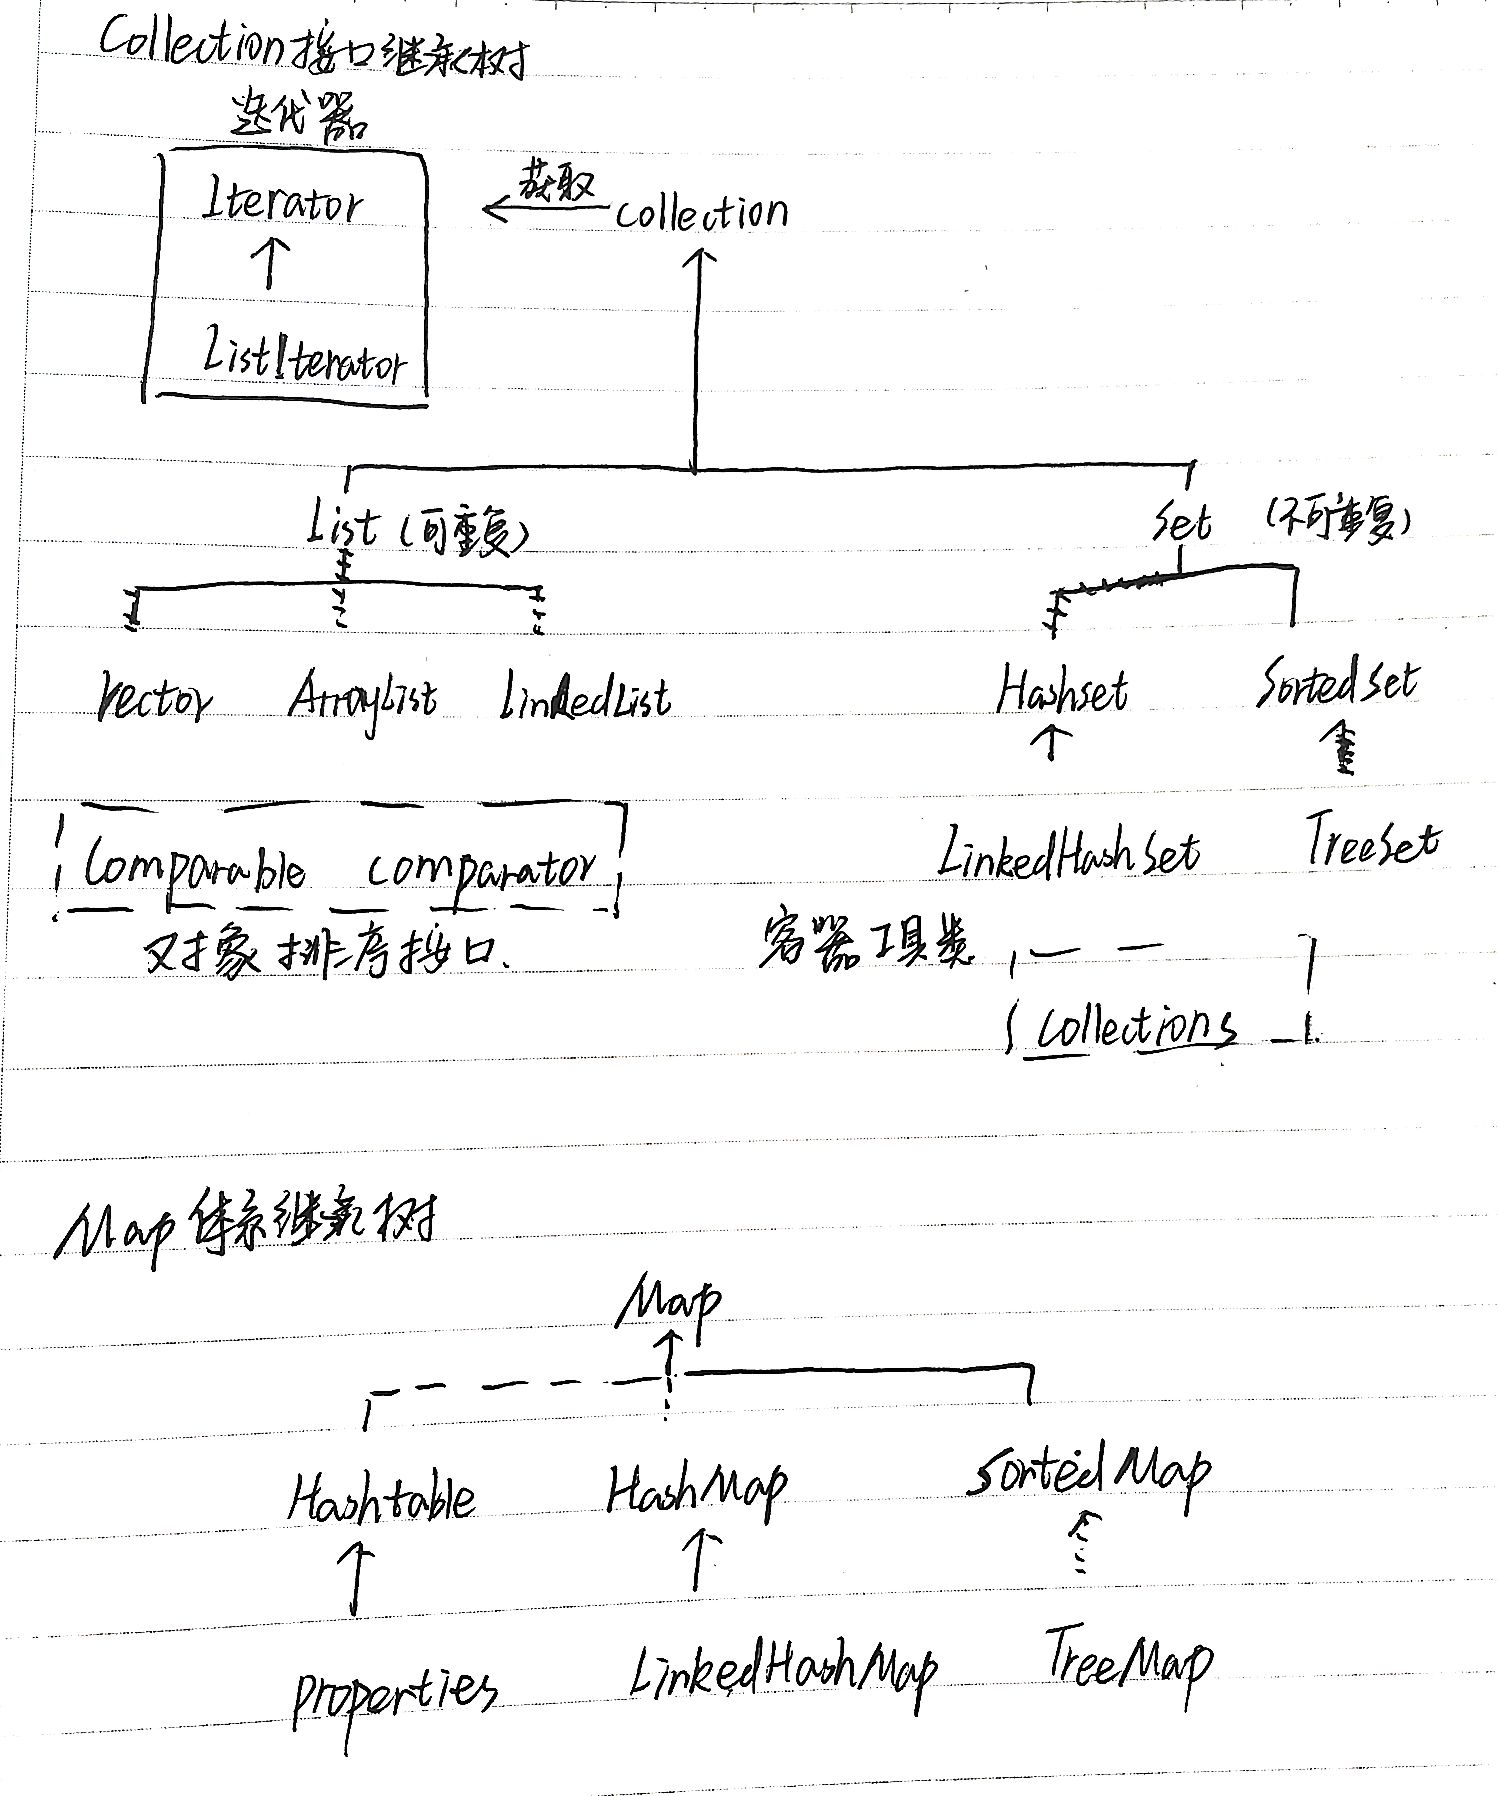 Collection接口继承树
迭代器
Iterator
获取
collection
ListIterator
List (可重复)
Set (不可重复)
Vector ArrayList LinkedList
Hashset SortedSet
LinkedHashSet TreeSet
Comparable comparator
对象排序接口.
容器工具类
Collections
Map体系继承树
Map
Hashtable HashMap SortedMap
properties LinkedHashMap TreeMap